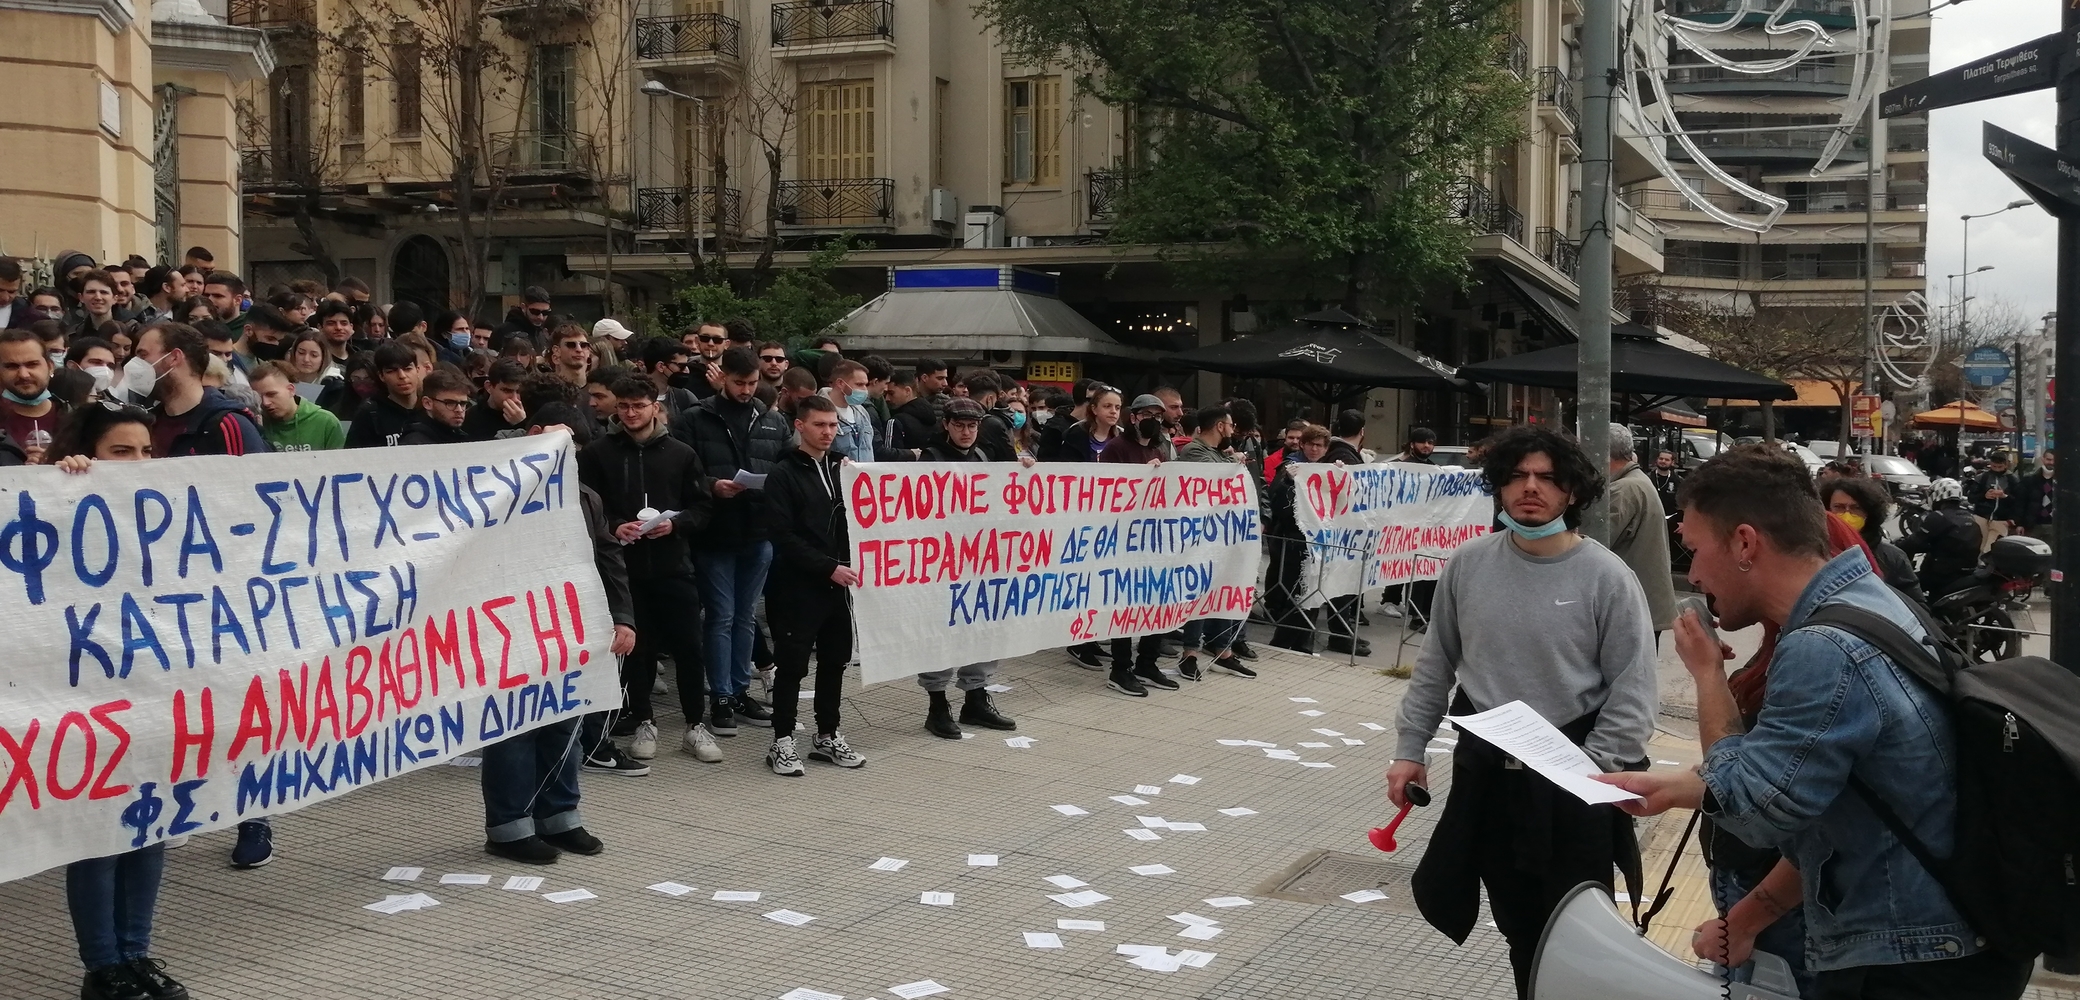 ΦΟΡΑ-ΣΥΓΧΩΝΕΥΣΗ
ΚΑΤΑΡΓΗΣΗ
ΧΟΣ Η ΑΝΑΒΑΘΜΙΣΗ!
Φ.Σ. ΜΗΧΑΝΙΚΩΝ ΔΙΠΑΕ.
ΘΕΛΟΥΝΕ ΦΟΙΤΗΤΕΣ ΓΙΑ ΧΡΗΣΗ
ΠΕΙΡΑΜΑΤΩΝ ΔΕ ΘΑ ΕΠΙΤΡΕΨΟΥΜΕ
ΚΑΤΑΡΓΗΣΗ ΤΜΗΜΑΤΩΝ
Φ.Σ. ΜΗΧΑΝΙΚΩΝ ΔΙ.ΠΑΕ
ΖΗΤΑΜΕ ΑΝΑΒΑΘΜΙΣ
ΜΗΧΑΝΙΚΩΝ
Πλατεία Τερψιθέας
Terpsitheas sq.
607m.
933m.